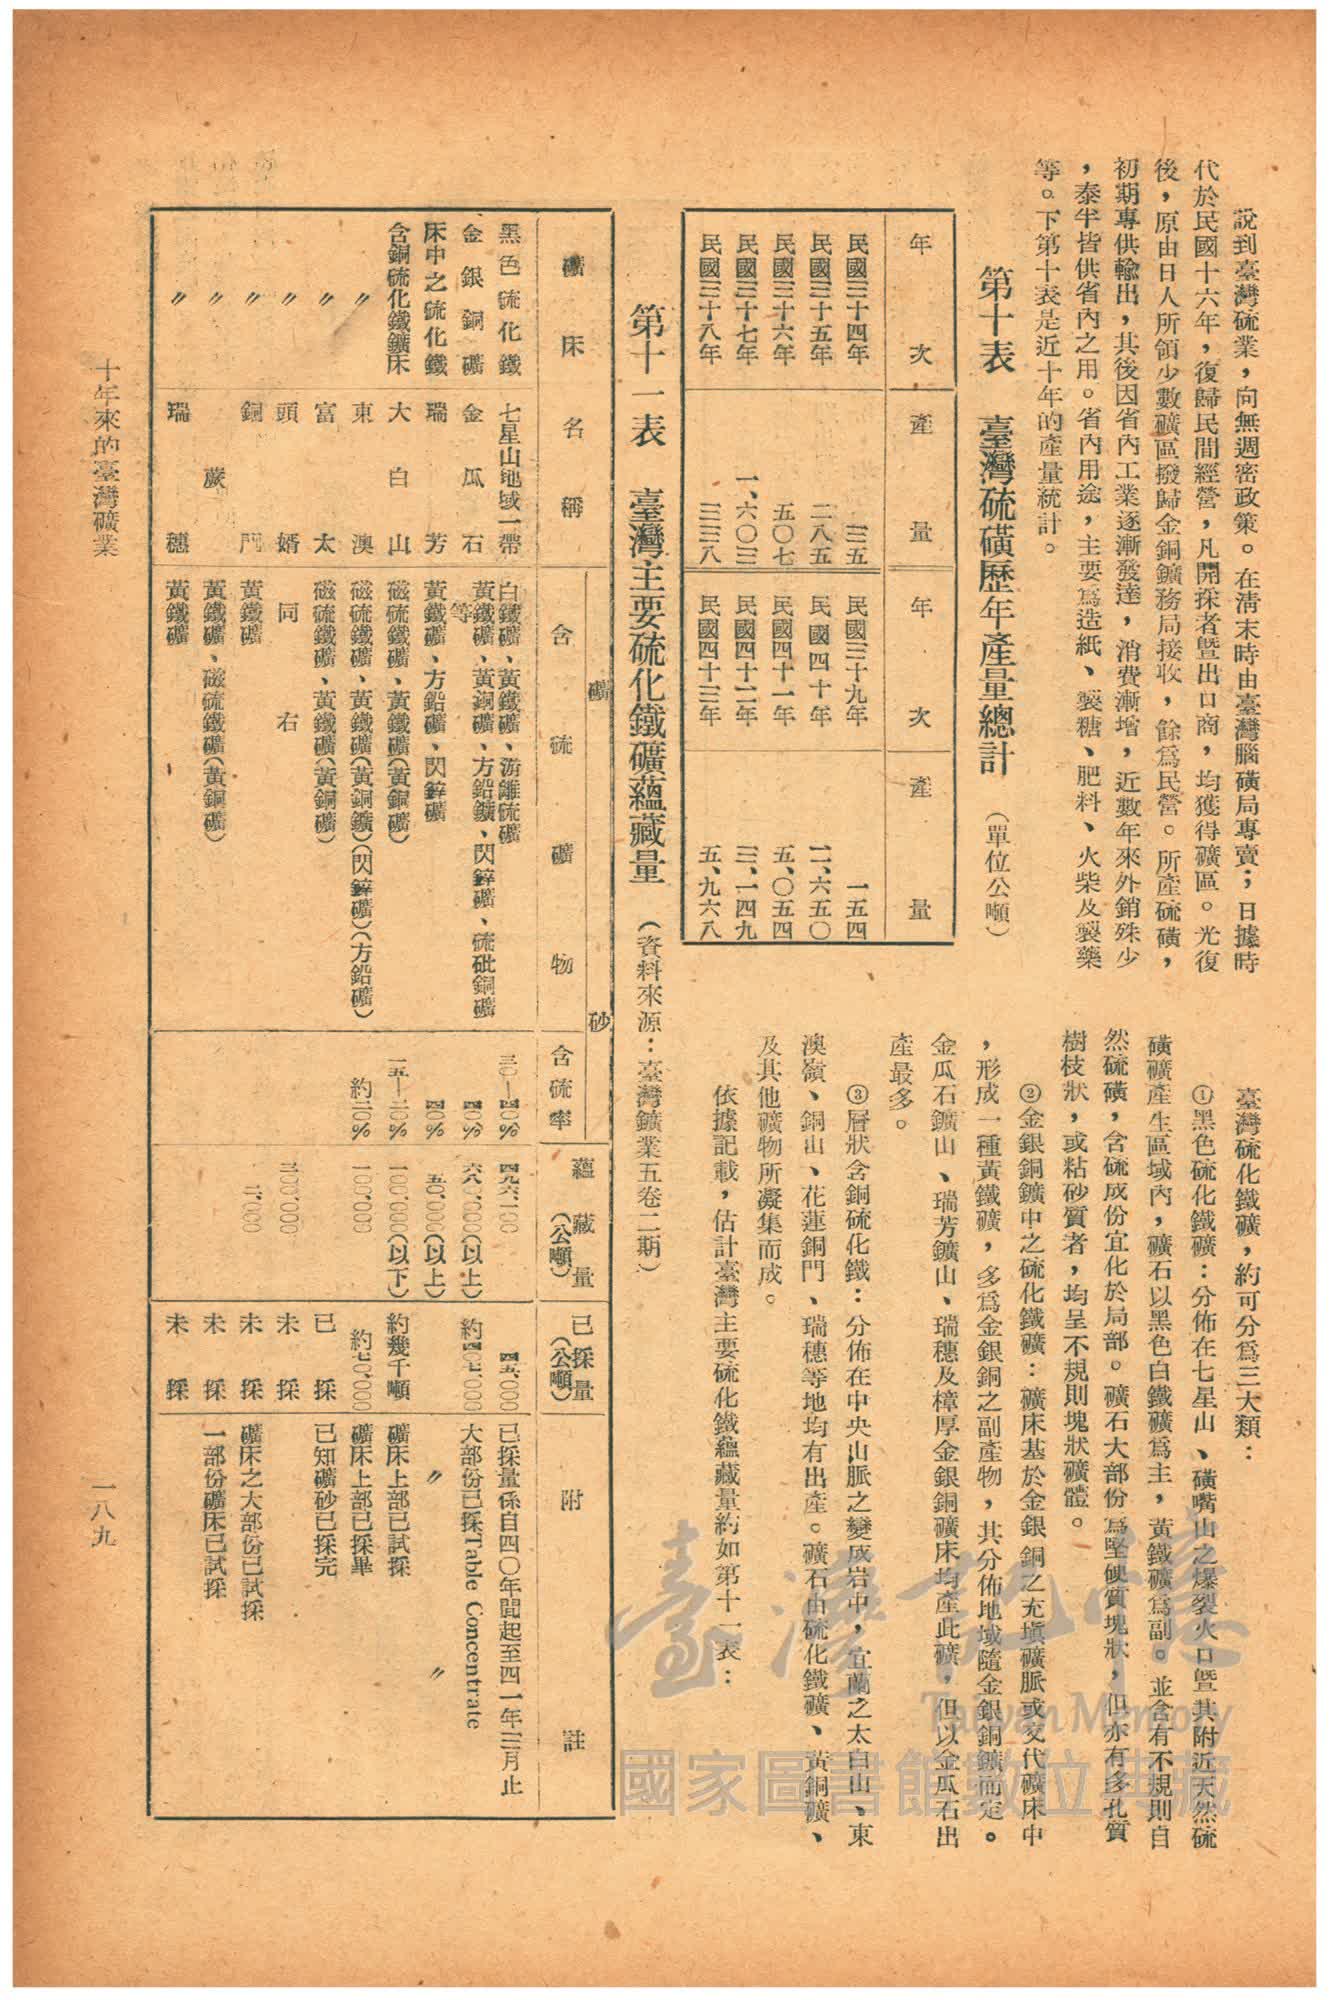 說到臺灣硫業，向無週密政策。在清末時由臺灣腦磺局專賣；日據時
代於民國十六年，復歸民間經營，凡開採者暨出口商，均獲得礦區。光復
後，原由日人所領少數礦區撥歸金銅鑛務局接收，餘爲民營。所產硫磺，
初期專供輸出，其後因省內工業逐漸發達，消費漸增，近數年來外銷殊少
，泰半皆供省內之用。省內用途，主要爲造紙、製糖、肥料、火柴及製藥
等。下第十表是近十年的產量統計。
第十表　臺灣硫磺歷年產量總計　（單位公噸）
年次　產量　年次　產量
民國三十四年　三五　民國三十九年　一五四
民國三十五年　二八五　民國四十年　二、六五〇
民國三十六年　五〇七　民國四十一年　五、〇五四
民國三十七年　一、六〇三　民國四十二年　三、一四九
民國三十八年　三三八　民國四十三年　五、九六八
臺灣硫化鐵礦，約可分爲三大類：
①黑色硫化鐵礦：分佈在七星山、磺嘴山之爆裂火口暨其附近天然硫
磺礦產生區域內，礦石以黑色白鐵礦爲主，黃鐵礦爲副。並含有不規則自
然硫磺，含硫成份宜化於局部。礦石大部份爲堅硬質塊狀，但亦有多孔質
樹枝狀，或粘砂質者，均呈不規則塊狀礦體。
②金銀銅鑛中之硫化鐵礦：礦床基於金銀銅之充填礦脈或交代礦床中
，形成一種黃鐵礦，多爲金銀銅之副產物，其分佈地域隨金銀銅鑛而定。
金瓜石鑛山、瑞芳鑛山、瑞穗及樟厚金銀銅礦床均產此礦，但以金瓜石出
產最多。
③層狀含銅硫化鐵：分佈在中央山脈之變成岩中，宜蘭之太白山、東
澳嶺、銅山、花蓮銅門、瑞穗等地均有出產。礦石由硫化鐵礦、黃銅礦、
及其他礦物所凝集而成。
依據記載，估計臺灣主要硫化鐵蘊藏量約如第十一表：
第十一表　臺灣主要硫化鐵礦蘊藏量　（資料來源：臺灣鑛業五卷二期）
礦床名稱　礦砂　含硫礦物　含硫率　蘊藏量（公噸）　已採量（公噸）　附註
黑色硫化鐵　七星山地域一帶　白鐵礦、黃鐵礦、游離硫礦　三〇—四〇%　四九六、一〇〇　四五、〇〇〇　已採量係自四〇年間起至四一年三月止
金銀銅礦　金瓜石　黃鐵礦、黃銅礦、方鉛鑛、閃鋅礦、硫砒銅礦等　四〇%　六八〇、〇〇〇（以上）　大部份已採Table Concentrate
床中之硫化鐵　瑞芳　黃鐵礦、方鉛礦、閃鋅礦　四〇%　五〇、〇〇〇（以上）　〃　〃
含銅硫化鐵鑛床　大白山　磁硫鐵礦、黃鐵礦（黃銅礦）　一五—二〇%　一〇〇、〇〇〇（以下）　約幾千噸　礦床上部已試採
〃　東澳　磁硫鐵礦、黃鐵礦（黃銅鑛）（閃鋅礦）（方鉛礦）　約二〇%　一〇〇、〇〇〇　礦床上部已採畢
〃　富太　磁硫鐵礦、黃鐵礦（黃銅礦）　已採　已知礦砂已採完
〃　頭㛃　同右　三〇〇、〇〇〇　未採
〃　銅門　黃鐵礦　未採　礦床之大部份已試採
〃　蕨　黃鐵礦、磁硫鐵礦（黃銅礦）　未採　一部份礦床已試採
〃　瑞穗　黃鐵礦　未採
十年來的臺灣礦業
一八九
臺灣記憶
Taiwan Memory
國家圖書館數位典藏